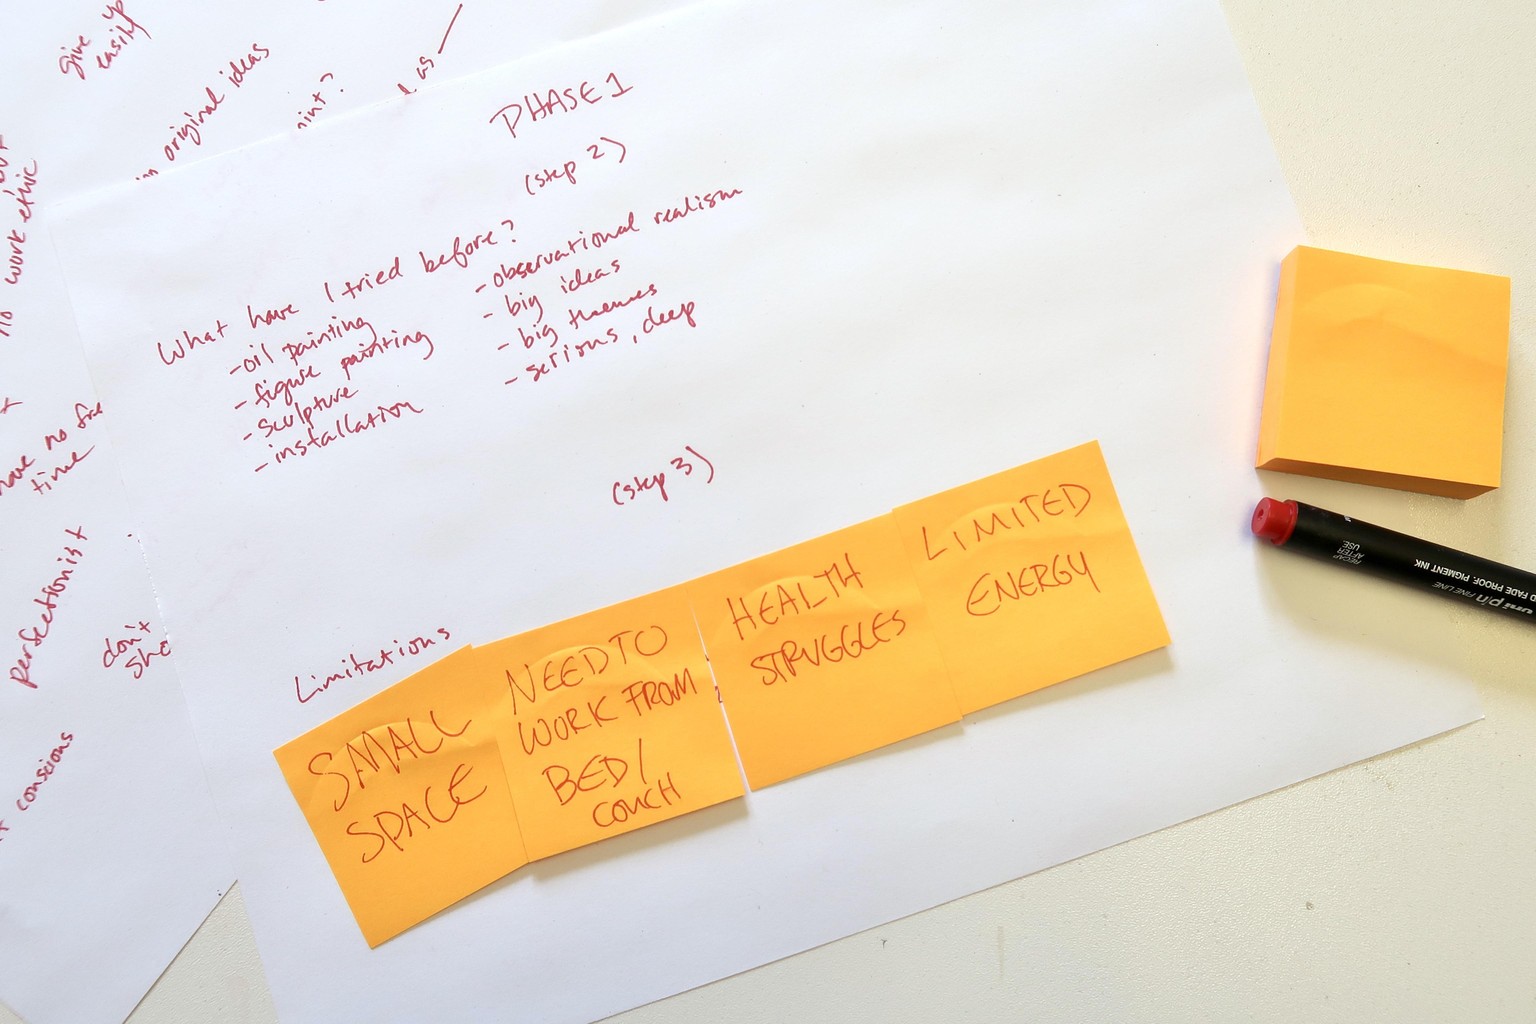 give up
easily
original ideas
as
no work ethic
have no free
time
perfectionist
don't
conscious
PHASE 1
(step 2)
What have I tried before?
-oil painting
-figure painting
-sculpture
-installation
-observational realism
-big ideas
-big themes
-serious, deep
(step 3)
Limitations
SMALL
SPACE
NEED TO
WORK FROM
BED/
COUCH
HEALTH
STRUGGLES
LIMITED
ENERGY
RECAP
AFTER
USE
FADE PROOF, PIGMENT INK
uni pin FINE LINE